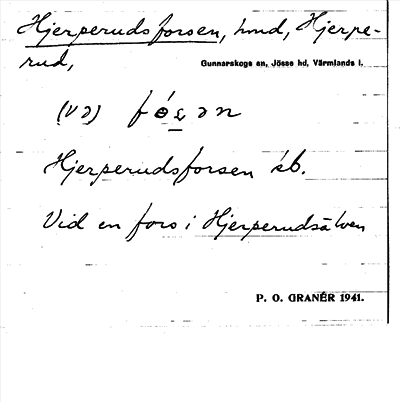 Hjerperudsforsen, hmd, Hjerpe-
rud,
Gunnarskogs sn, Jösse hd, Värmlands l.
Hjerperudsforsen ek.
Vid en fors i Hjerperudsälven
P. O. GRANÉR 1941.